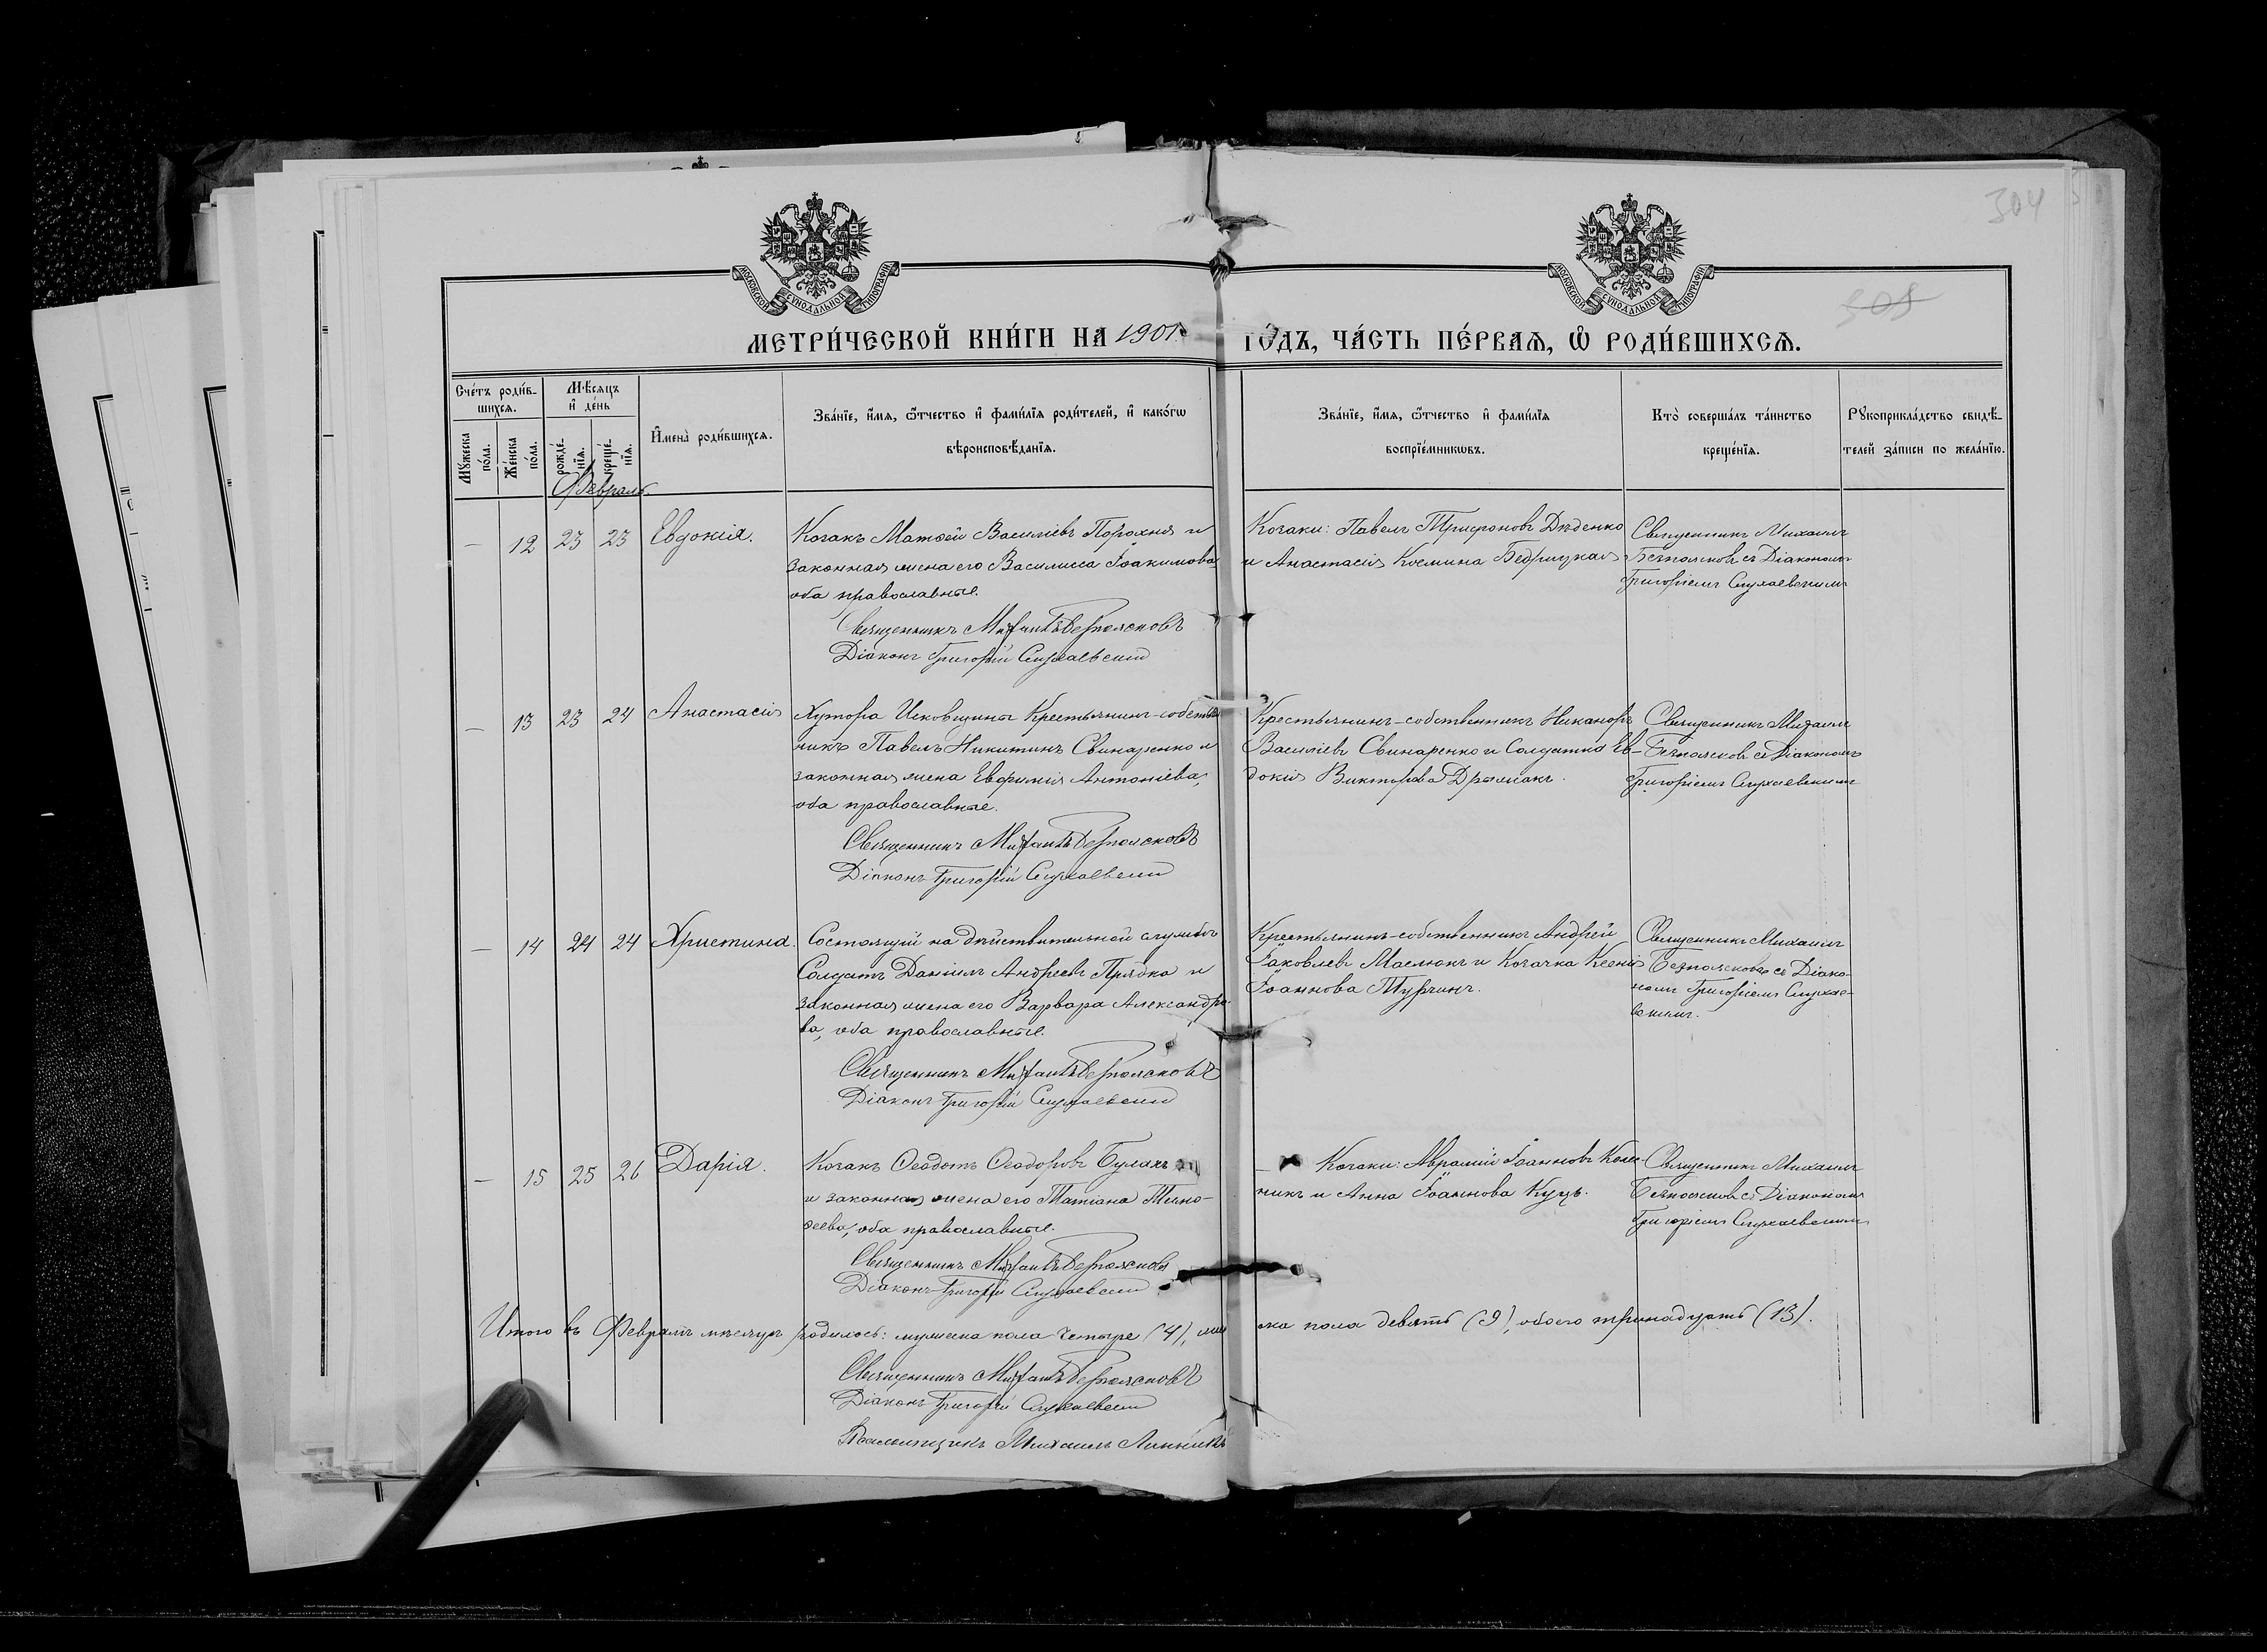 304
305
МОСКОВСКОЙ СУНОДАЛЬНОЙ ТИПОГРАФІИ
МОСКОВСКОЙ СУНОДАЛЬНОЙ ТИПОГРАФІИ
МЕТРИ́ЧЕСКОЙ КНИ́ГИ НА 1901 ГО́ДЪ, ЧА́СТЬ ПЕ́РВАѦ, Ѡ РОДИ́ВШИХСѦ.
Сче́тъ роди́в-
шихсѧ.
Мꙋ́жеска
по́ла.
Же́нска
по́ла.
Мѣ́сѧцъ
и҆ де́нь
рожде́-
нїѧ.
креще́-
нїѧ.
И҆мена̀ роди́вшихсѧ.
Зва́нїе, и҆́мѧ, ѻ҆́тчество и҆ фами́лїѧ роди́телей, и҆ како́гѡ
вѣроисповѣ́данїѧ.
Зва́нїе, и҆́мѧ, ѻ҆́тчество и҆ фами́лїѧ
воспрїе́мникѡвъ.
Кто̀ соверша́лъ та́инство
креще́нїѧ.
Рꙋкоприкла́дство свидѣ́-
телей за́писи по жела́нїю.
Февраль.
— 12 23 23 Евдокія.
Козакъ Матѳей Василіевъ Порохня и
законная жена его Василисса Іоакимова
оба православные.
Священникъ Михаилъ Безпоясковъ
Діаконъ Григорій Слухаевскій
Козаки: Павелъ Трифоновъ Дѣденко
и Анастасія Космина Бедрицкая
Священникъ Михаилъ
Безпоясковъ съ Діакономъ
Григоріемъ Слухаевскимъ
— 13 23 24 Анастасія
Хутора Исковщины Крестьянинъ-собствен
никъ Павелъ Никитинъ Свинаренко и
законная жена Евфимія Антоніева,
оба православные.
Священникъ Михаилъ Безпоясковъ
Діаконъ Григорій Слухаевскій
Крестьянинъ-собственникъ Никаноръ
Василіевъ Свинаренко и Солдатка Ев-
докія Викторова Дрымакъ.
Священникъ Михаилъ
Безпоясковъ съ Діакономъ
Григоріемъ Слухаевскимъ
— 14 24 24 Христина.
Состоящій на дѣйствительной службѣ
Солдатъ Даніилъ Андреевъ Прядка и
законная жена его Варвара Александро-
ва, оба православные.
Священникъ Михаилъ Безпоясковъ
Діаконъ Григорій Слухаевскій
Крестьянинъ-собственникъ Андрей
Іаковлевъ Маслюкъ и Козачка Ксенія
Іоаннова Турчинъ.
Священникъ Михаилъ
Безпоясковъ съ Діако-
номъ Григоріемъ Слухае-
вскимъ.
— 15 25 26 Дарія.
Козакъ Ѳеодотъ Ѳеодоровъ Булахъ
и законная жена его Татіана Тимо-
ѳеева, оба православные.
Священникъ Михаилъ Безпоясковъ
Діаконъ Григорій Слухаевскій
Козаки: Аврамій Іоанновъ Колес-
никъ и Анна Іоаннова Куцъ.
Священникъ Михаилъ
Безпоясковъ съ Діакономъ
Григоріемъ Слухаевскимъ
Итого въ Февралѣ мѣсяцѣ родилось: мужеска пола четыре (4), жен ска пола девять (9), обоего тринадцать (13).
Священникъ Михаилъ Безпоясковъ
Діаконъ Григорій Слухаевскій
Псаломщикъ Михаилъ Линникъ